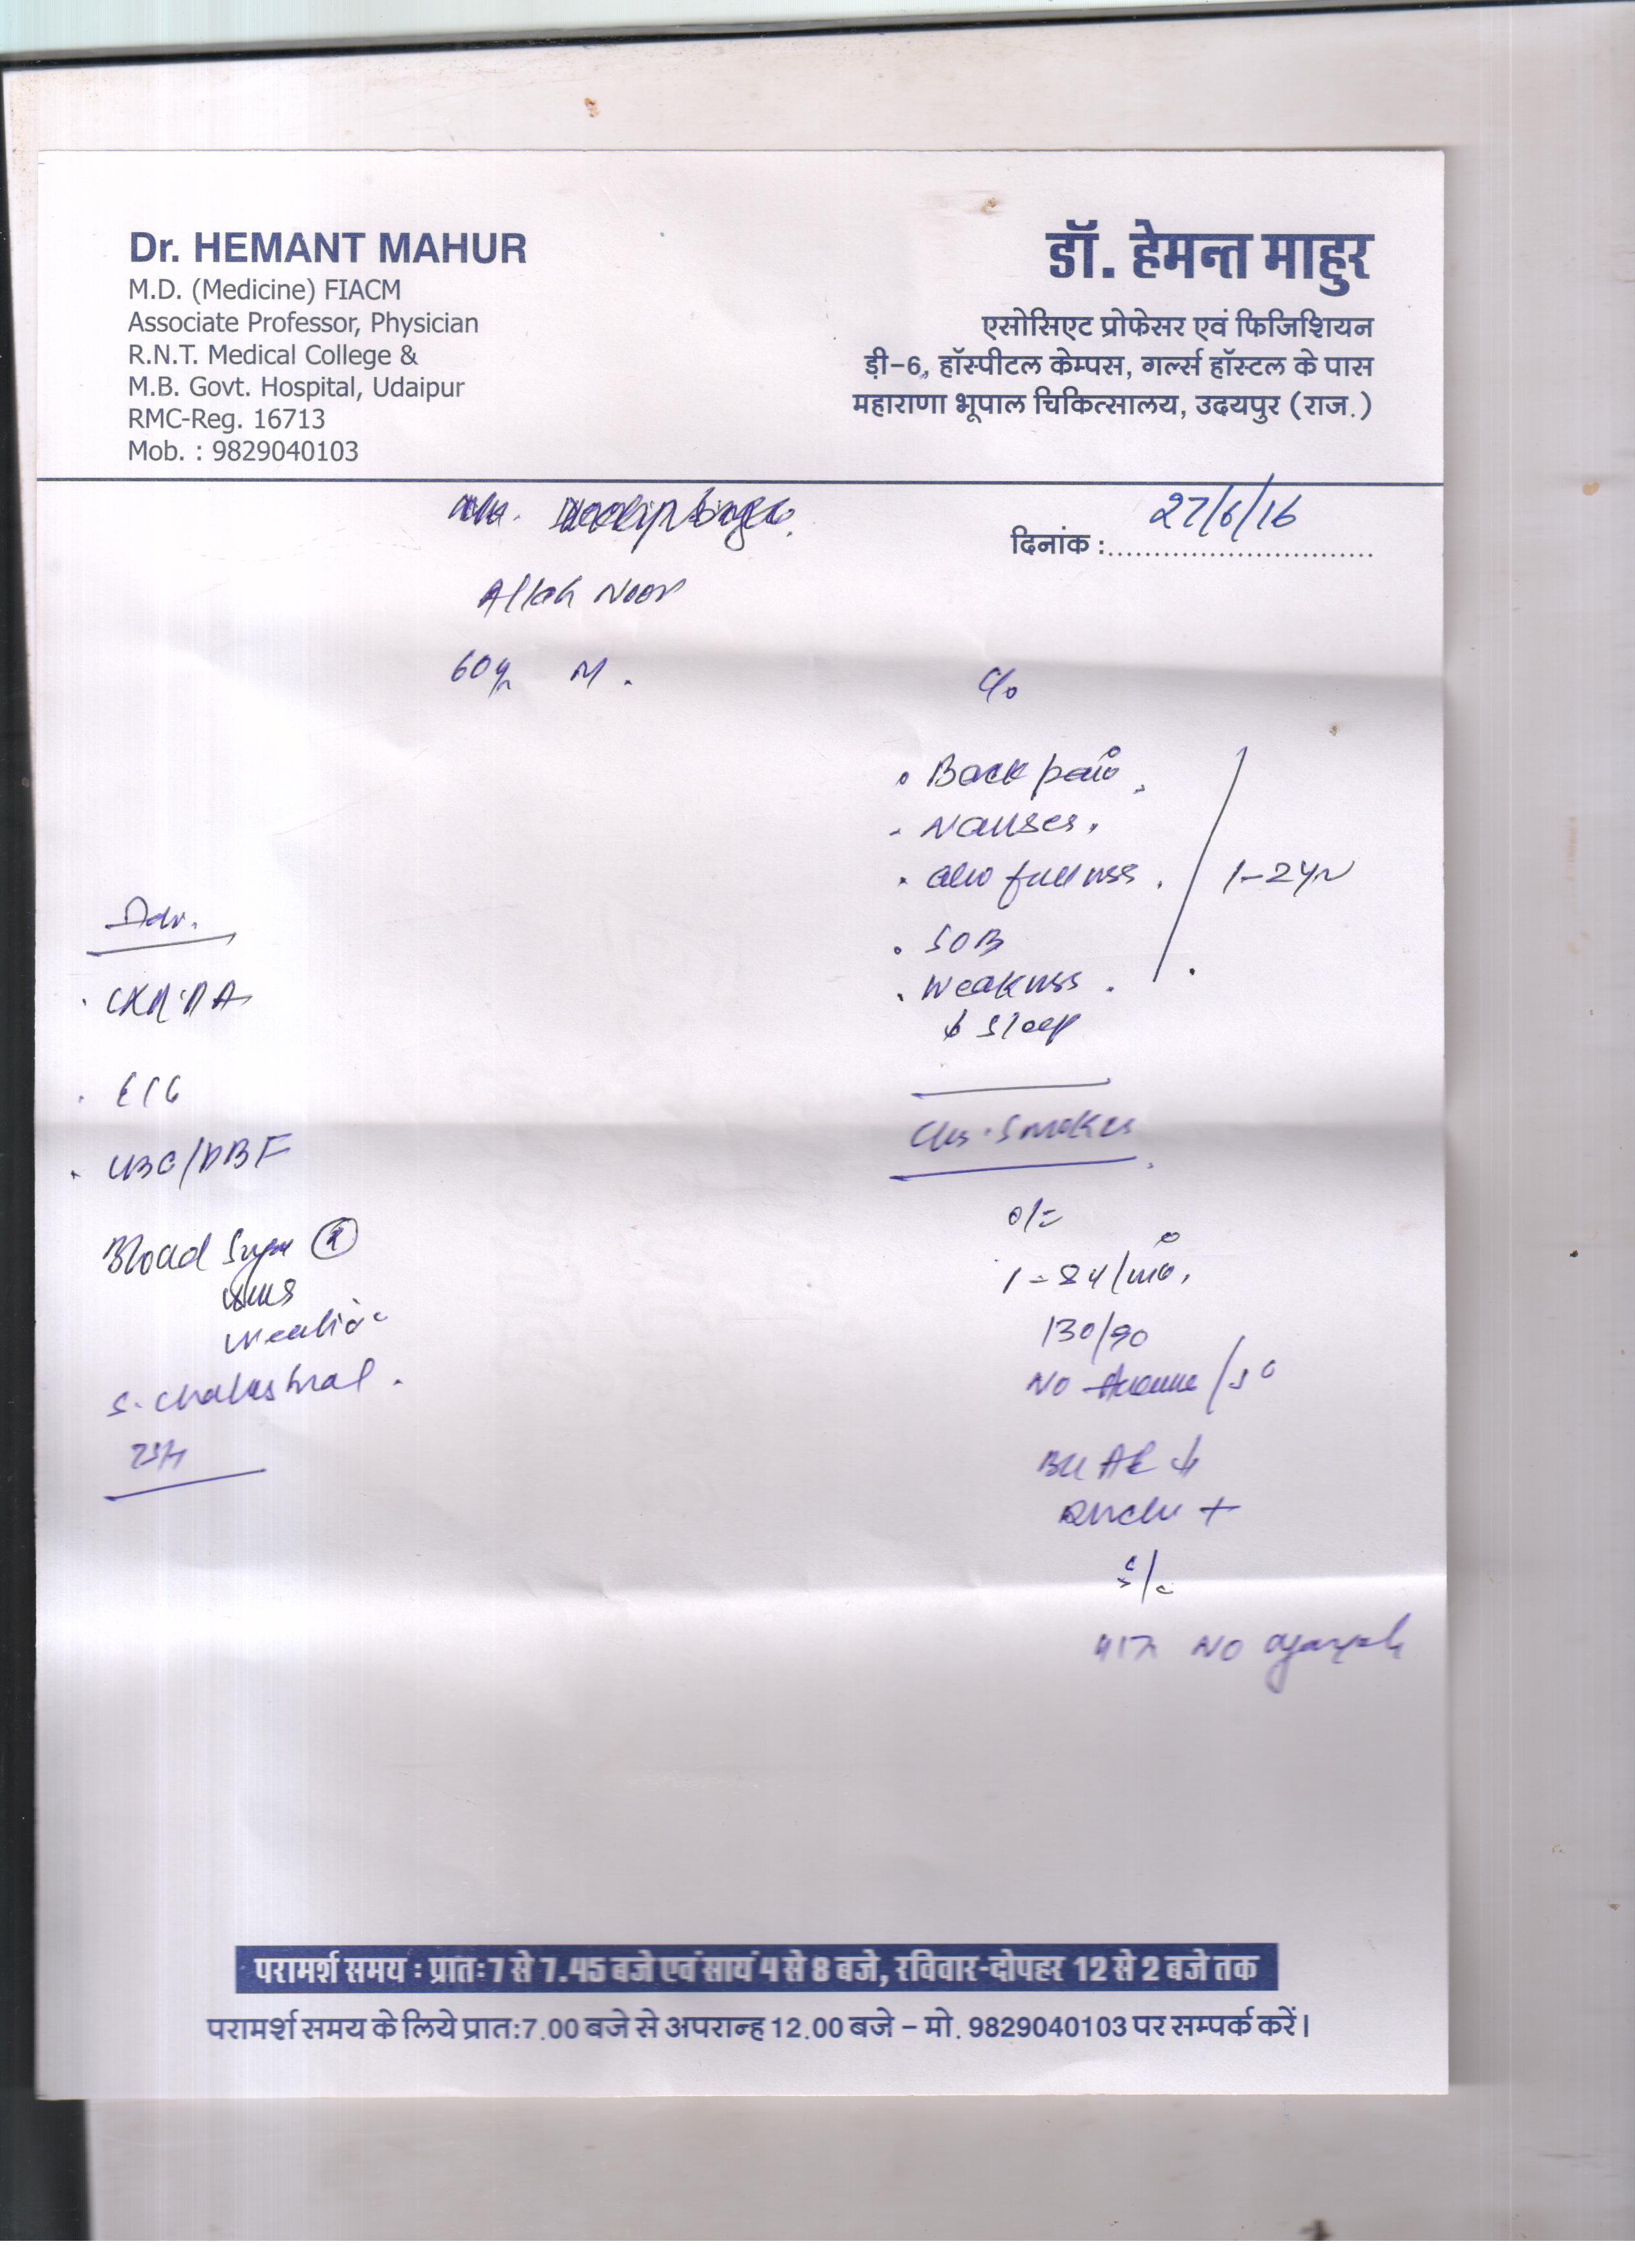 Dr. HEMANT MAHUR
M.D. (Medicine) FIACM
Associate Professor, Physician
R.N.T. Medical College &
M.B. Govt. Hospital, Udaipur
RMC-Reg. 16713
Mob. : 9829040103
डॉ. हेमन्त माहुर
एसोसिएट प्रोफेसर एवं फिजिशियन
ड़ी-6, हॉस्पीटल केम्पस, गर्ल्स हॉस्टल के पास
महाराणा भूपाल चिकित्सालय, उदयपुर (राज.)
दिनांक : 27/6/16
Allah Noor
60 M.
C/o
Back pain,
Nausea,
fullness.
1-2 yr
SOB
Weakness.
↓ sleep
Smoker
O/E
84/min,
130/90
No
BL AE ↓
Ronchi +
S/C
No
Adv.
CXR PA
ECG
CBC/PBF
Blood Sugar (R)
S. Cholestrol.
TSH
परामर्श समय : प्रातः 7 से 7.45 बजे एवं सायं 4 से 8 बजे, रविवार-दोपहर 12 से 2 बजे तक
परामर्श समय के लिये प्रातः 7.00 बजे से अपरान्ह 12.00 बजे – मो. 9829040103 पर सम्पर्क करें।